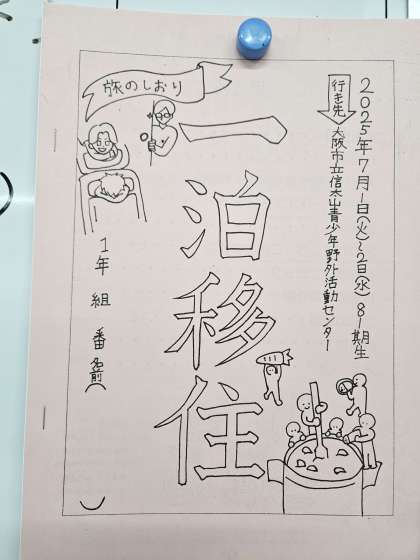 2025年7月1日(火)~2日(水) 81期生
行き先
大阪市立信太山青少年野外活動センター
一泊移住
旅のしおり
1年 組 番 名前( )